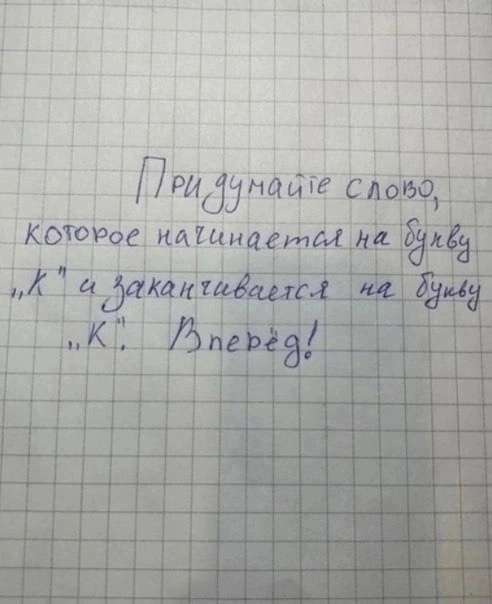 Придумайте слово,
которое начинается на букву
„К" и заканчивается на букву
„К". Вперёд!